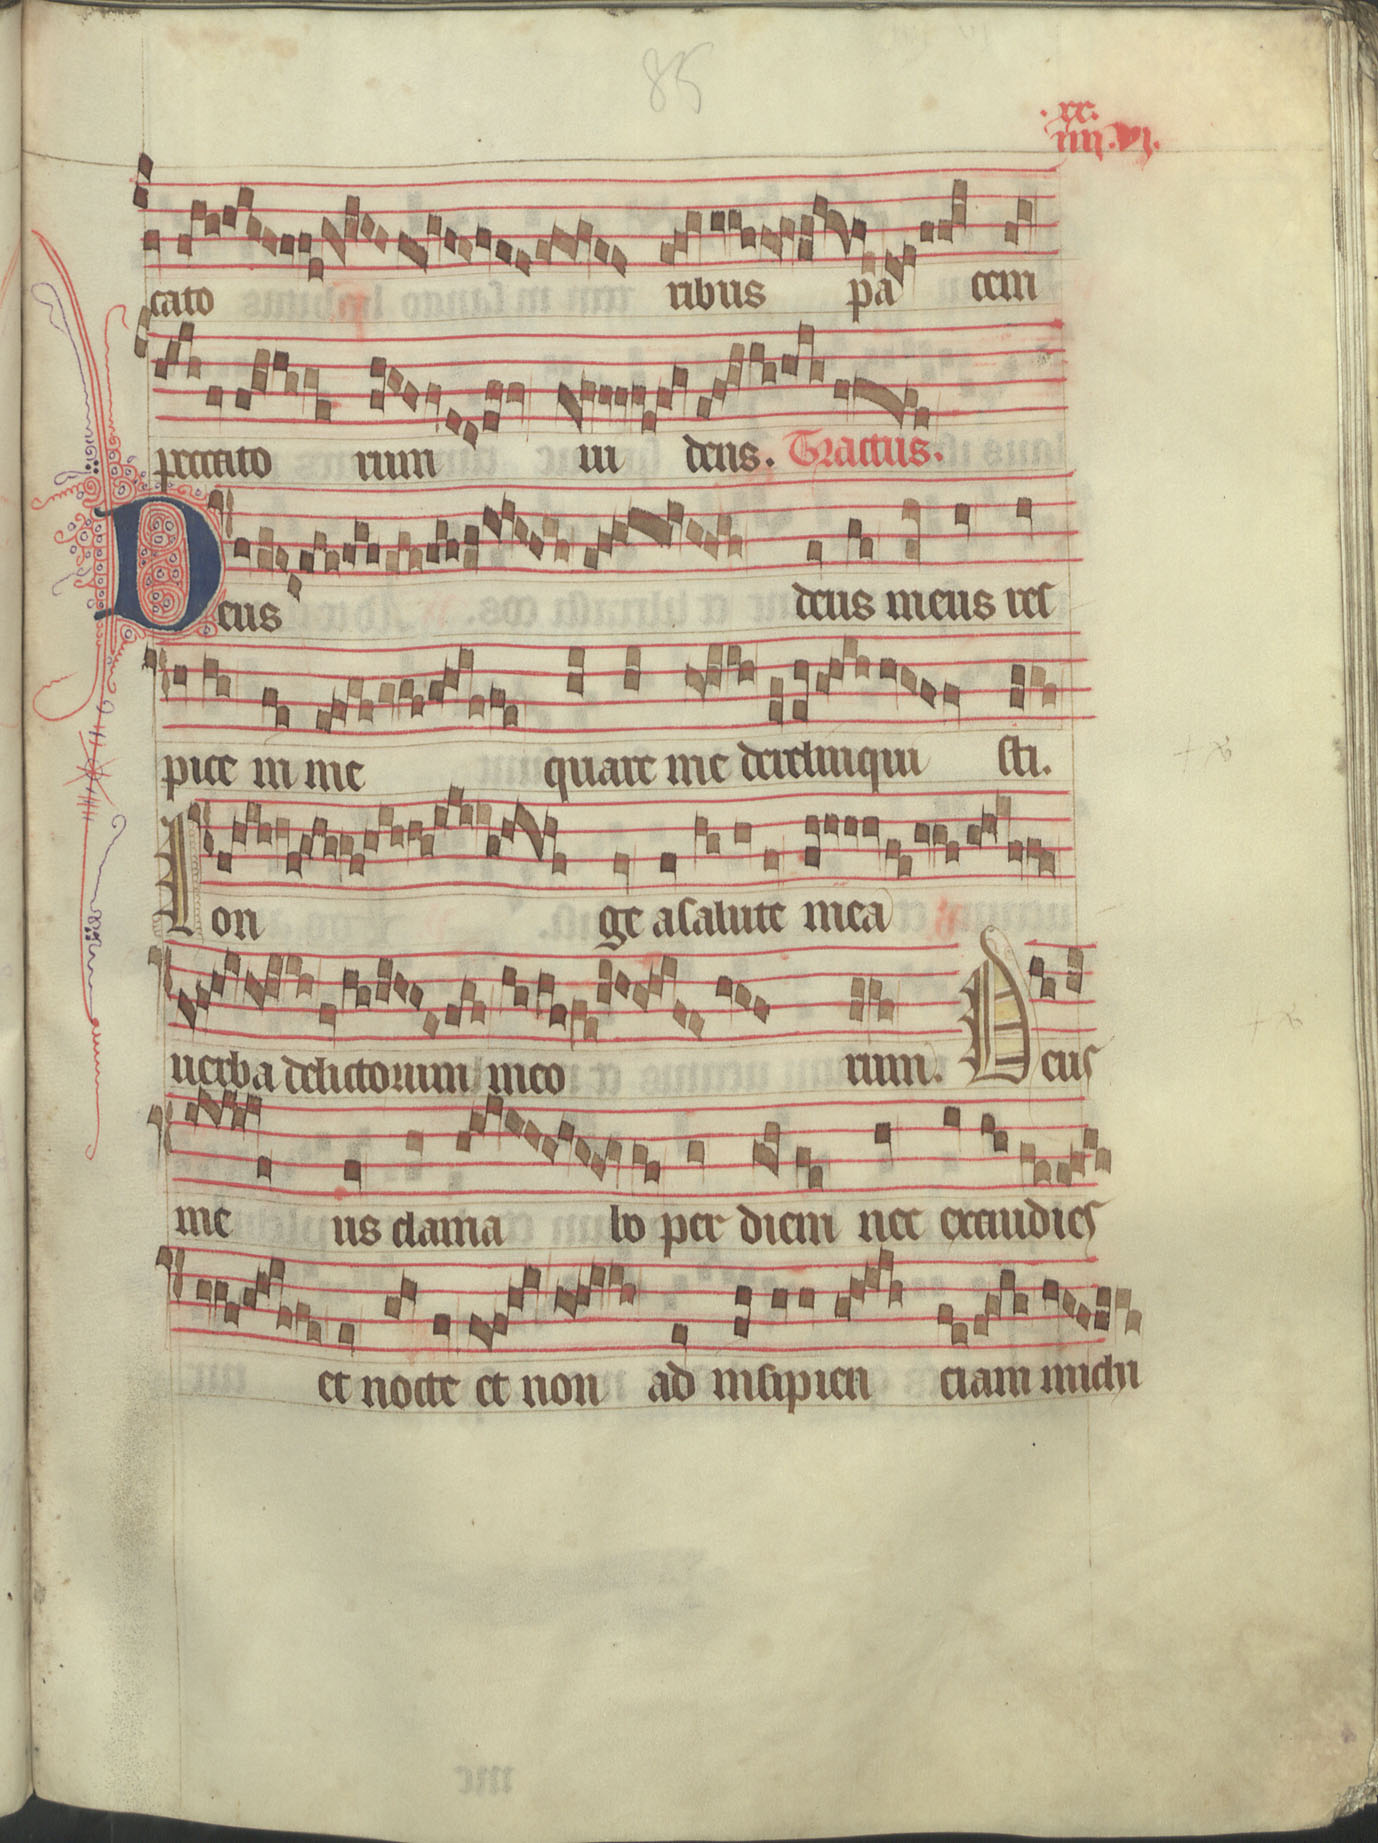 85
.xx.
iiii.vi.
cato ribus pa cem
peccato rum ui dens. Tractus.
Deus deus meus res
pice in me quare me dereliniqui sti.
Lon ge a salute mea
uerba delictorum meo rum. Deus
me us clama bo per diem nec exaudies
et nocte et non ad insipien ciam michi